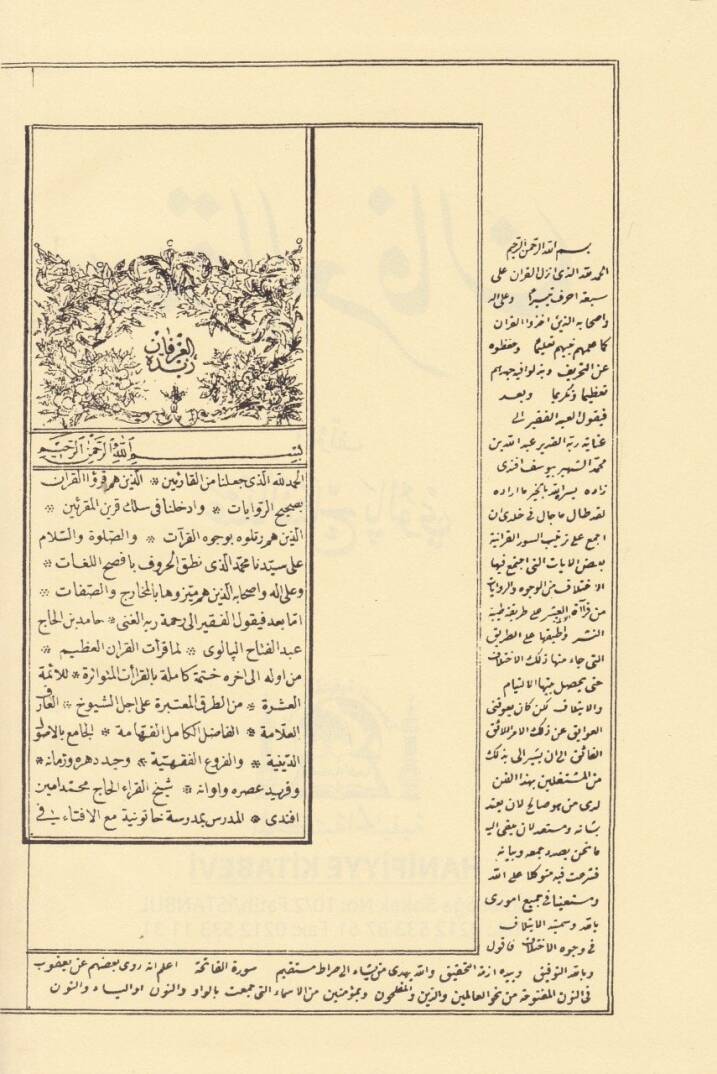 زبدة العرفان
بسم الله الرحمن الرحيم
الحمد لله الذى جعلنا من القارئين * الذين هم قرؤا القران
بصحيح الروايات * وادخلنا فى سلك قرين المقرئين *
الذين هم رتلوه بوجوه القرآت * والصلوة والسلام
على سيدنا محمد الذى نطق الحروف بافصح اللغات *
وعلى اله واصحابه الذين هم ميزوها بالمخارج والصفات *
اما بعد فيقول الفقير الى رحمة ربه الغنى * حامد بن الحاج
عبد الفتاح البالوى * لما قرأت القران العظيم *
من اوله الى اخره ختمة كاملة بالقرأت المتواترة * للائمة
العشرة * من الطرق المعتبرة على اجل الشيوخ * العارف
العلامة * الفاضل الكامل الفهامة * الجامع بالاصول
الدينية * والفروع الفقهية * وحيد دهره وزمانه *
وفريد عصره واوانه * شيخ القراء الحاج محمد امين
افندى * المدرس بمدرسة خاتونية مع الافتاء فى
بسم الله الرحمن الرحيم
الحمد لله الذى انزل القران على
سبعة احرف تيسيرا وعلى اله
واصحابه الذين اخذوا القران
كما علمهم نبيهم تعليما وحفظوه
عن التحريف وبذلوا فيه جهدهم
تعظيما وتكريما وبعد
فيقول العبد الفقير الى
عناية ربه القدير عبد الله بن
محمد الشهير بيوسف افندى
زاده يسر الله بالخير ما اراده
لقد طال ما جال فى خلدى ان
اجمع على ترتيب السور القرانية
بعض الايات التى اجتمع فيها
الاختلاف من الوجوه والروايات
من قرأة العشر على طريقة طيبة
النشر وتطبيقها على الطريق
التى جاء منها ذلك الاختلاف
حتى يحصل بينها الالتيام
والايتلاف لكن كان يعوقنى
العوايق عن ذلك الامر اللائق
الفائق الى ان يشير الى بذلك
من المشتغلين بهذا الفن
لدى من هو صالح لان يعتد
بشانه ومستعد لان يلقى اليه
ما نحن بصدد جمعه وبيانه
فشرعت فيه متوكلا على الله
ومستعينا فى جميع امورى
بالله وسميته الايتلاف
فى وجوه الاختلاف فاقول
وبالله التوفيق وبيده ازمة التحقيق والله يهدى من يشاء الى صراط مستقيم سورة الفاتحة اعلم انه روى بعضهم عن يعقوب
فى النون المفتوحة من نحو العالمين والذين والمفلحون وبمؤمنين من الاسماء التى جمعت بالواو والنون او الياء والنون